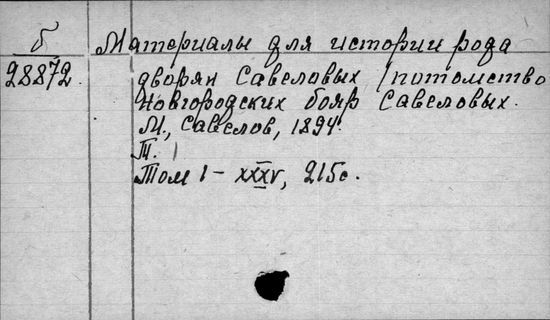 б
Материалы для истории рода
28872.
дворян Савеловых /потомство
Новгородских бояр Савеловых.
М., Савелов, 1894.
Т. 1
Том I – XXXV, 215 с.